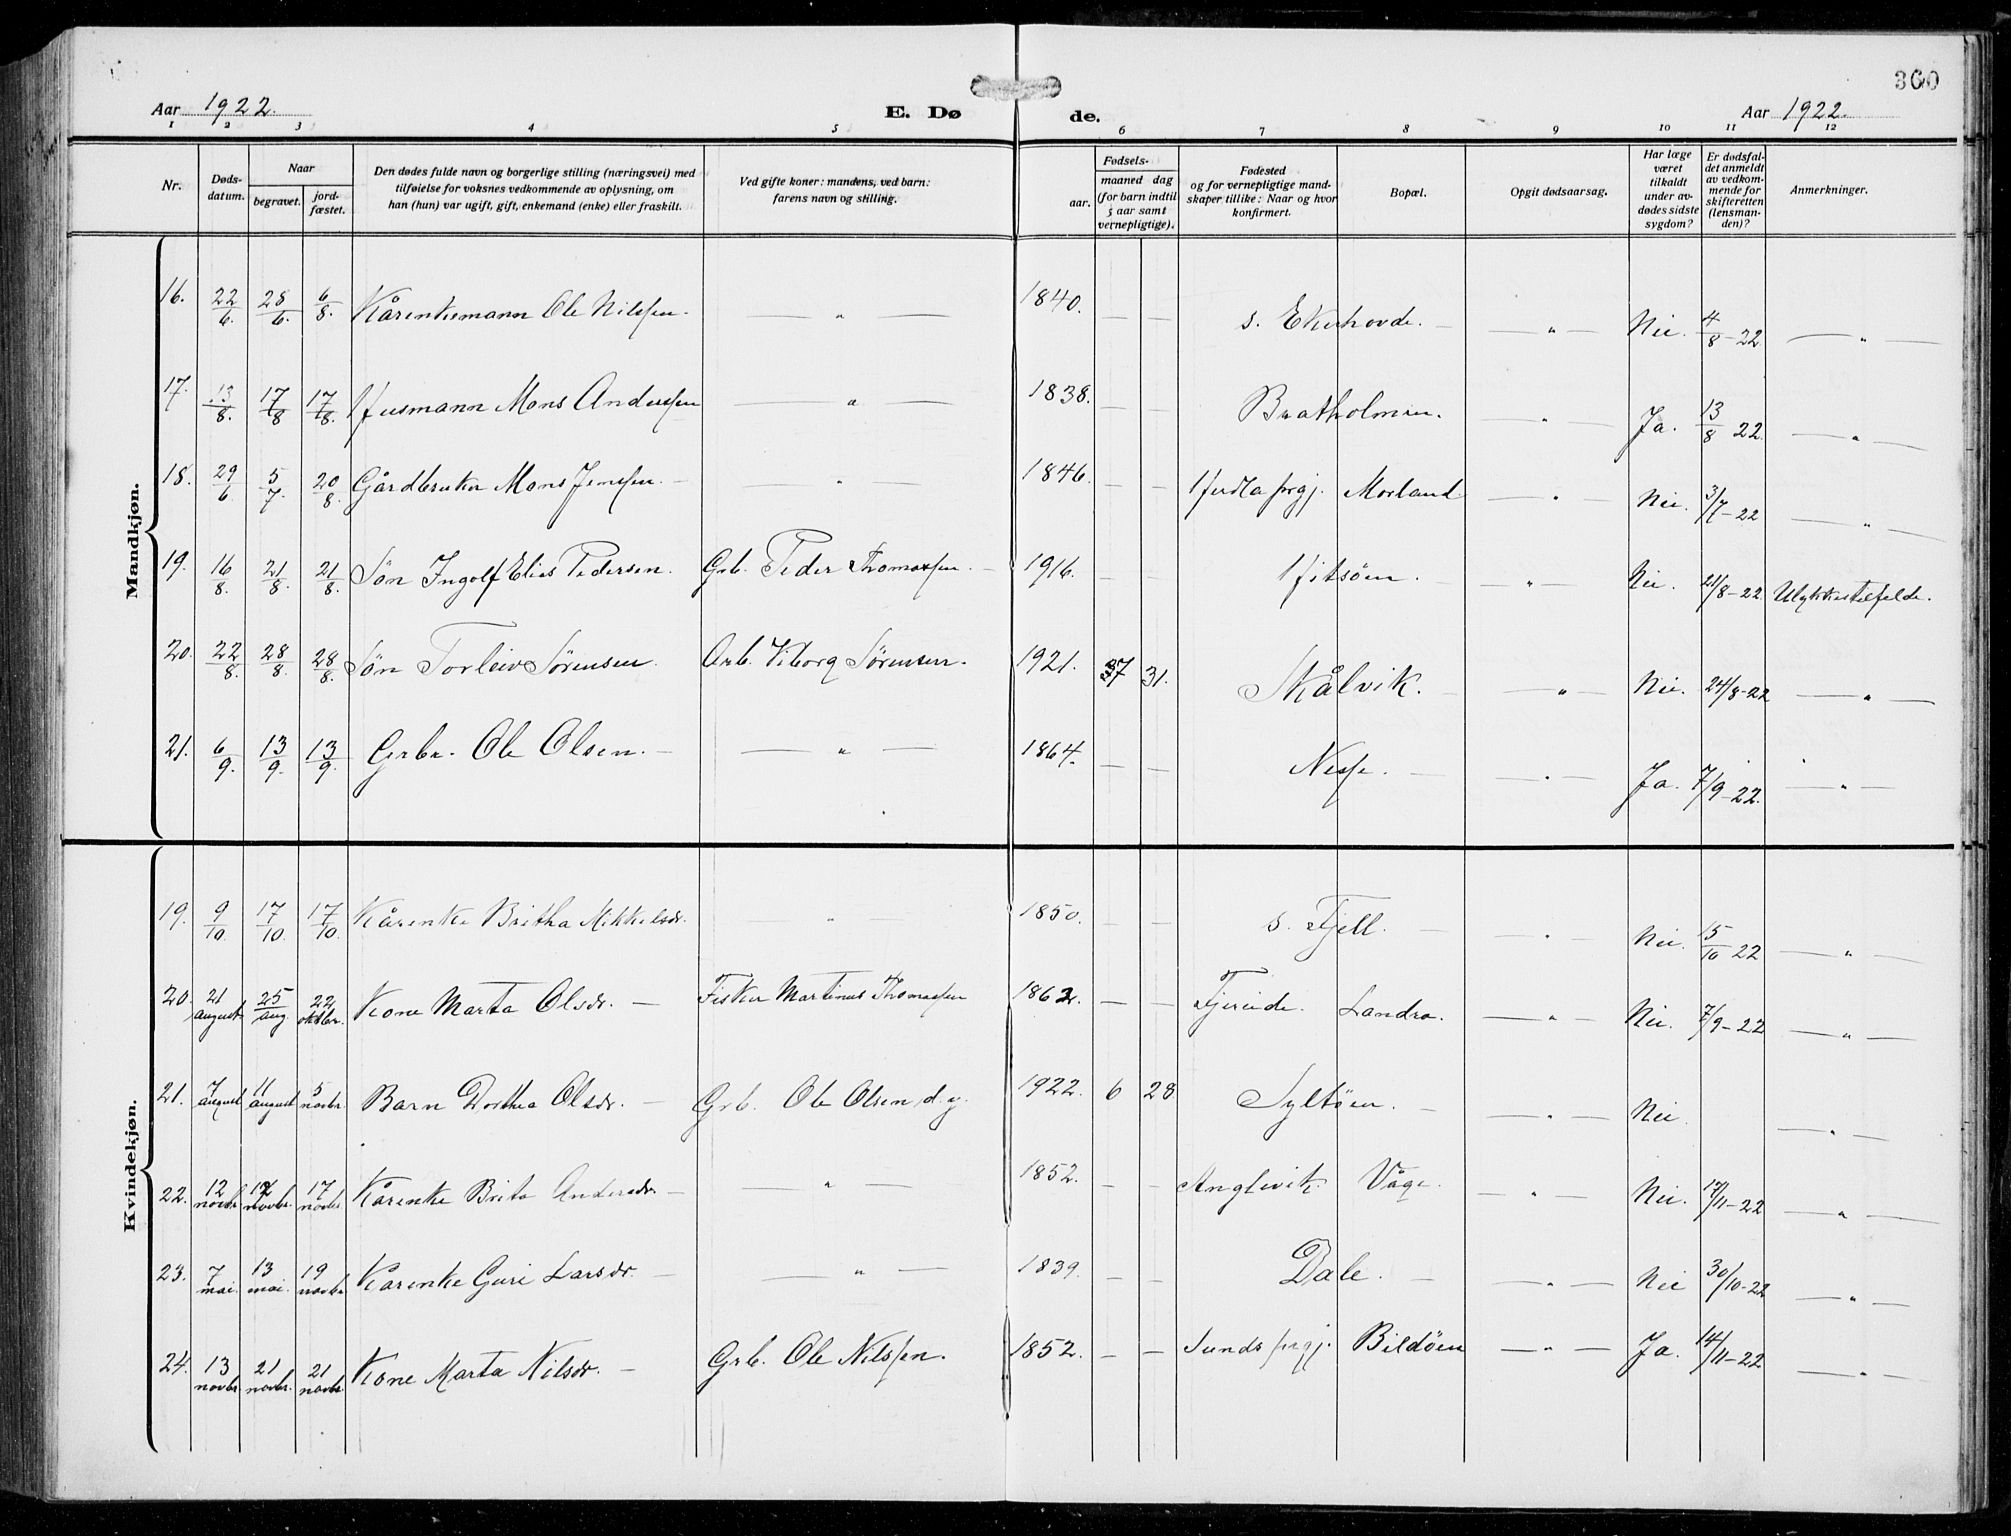 360
Aar 1922. E. Dø de. Aar 1922.
1 2 3 4 5 6 7 8 9 10 11 12
Nr. Døds-datum. Naar begravet. jord-fæstet. Den dødes fulde navn og borgerlige stilling (næringsvei) med tilføielse for voksnes vedkommende av oplysning, om han (hun) var ugift, gift, enkemand (enke) eller fraskilt. Ved gifte koner: mandens, ved barn: farens navn og stilling. Fødsels- aar. maaned dag (for barn indtil 5 aar samt vernepligtige). Fødested og for vernepligtige mand-skaper tillike: Naar og hvor konfirmert. Bopæl. Opgit dødsaarsag. Har læge været tilkaldt under av-dødes sidste sygdom? Er dødsfal-det anmeldt av vedkom-mende for skifteretten (lensman-den)? Anmerkninger.
Mandkjøn.
16. 22/6. 28/6. 6/8. Kårenkemann Ole Nilssen. — " — 1840. — — s. Ekerhovde. — — " — Nei. 4/8-22 — " —
17. 13/8. 17/8 17/8. Husmann Mons Anderssen — " — 1838. — — Bratholmen. — " — Ja. 13/8 22. — " —
18. 29/6 5/7. 20/8. Gårdbruker Mons Jenssen. — — " — 1846. — — Herdla prgj. Morland — " — Nei. 3/7-22 — " —
19. 16/8. 21/8. 21/8. Sön Ingolf Elias Pedersen. Grb. Peder Thomassen. — 1916. — Hitsöen. — — " — Nei. 21/8-22 Ulykkestilfelde.
20. 22/8. 28/8. 28/8. Sön Torleiv Sörensen. Arb. Viborg Sörensen. 1921. 7 31. Skålvik. — — " — Nei. 24/8-22 — " —
21. 6/9. 13/9. 13/9. Grbr. Ole Olsen. — — " — 1864. — — Nesse. — — " — Ja. 7/9-22. — " —
Kvindekjøn.
19. 9/10. 17/10. 17/10. Kårenke Britha Mikkelsdr. — " 1850. — — s. Fjell. — — " — Nei. 15/10 22 — " —
20. 21 august 25 aug. 22 oktbr. Kone Marta Olsdr. — Fisker Martinus Thomassen 1862. — — Tjereide. Landro. — " — Nei. 7/9-22 — " —
21. 7 august 11 august 5 novbr. Barn Dorthea Olsdr. — Grb. Ole Olsen d. y. 1922. 6 28 Syltöen. — — " — Nei — " —
22. 12 novbr 17 novbr. 17 novbr Kårenke Brita Andersdr. — — " — 1852. — — Anglevik. Våge. — " — Nei. 17/11-22 — " —
23. 7 mai. 13 mai. 19 novbr. Kårenke Guri Larsdr. — — " — 1839. — — Dale. — — " — Nei 30/10-22 — " —
24. 13 novbr. 21 novbr. 21 novbr. Kone Marta Nilsdr. — Grb. Ole Nilssen. 1852. — — Sunds prgj. Bildöen — " — Ja. 14/11-22 — " —